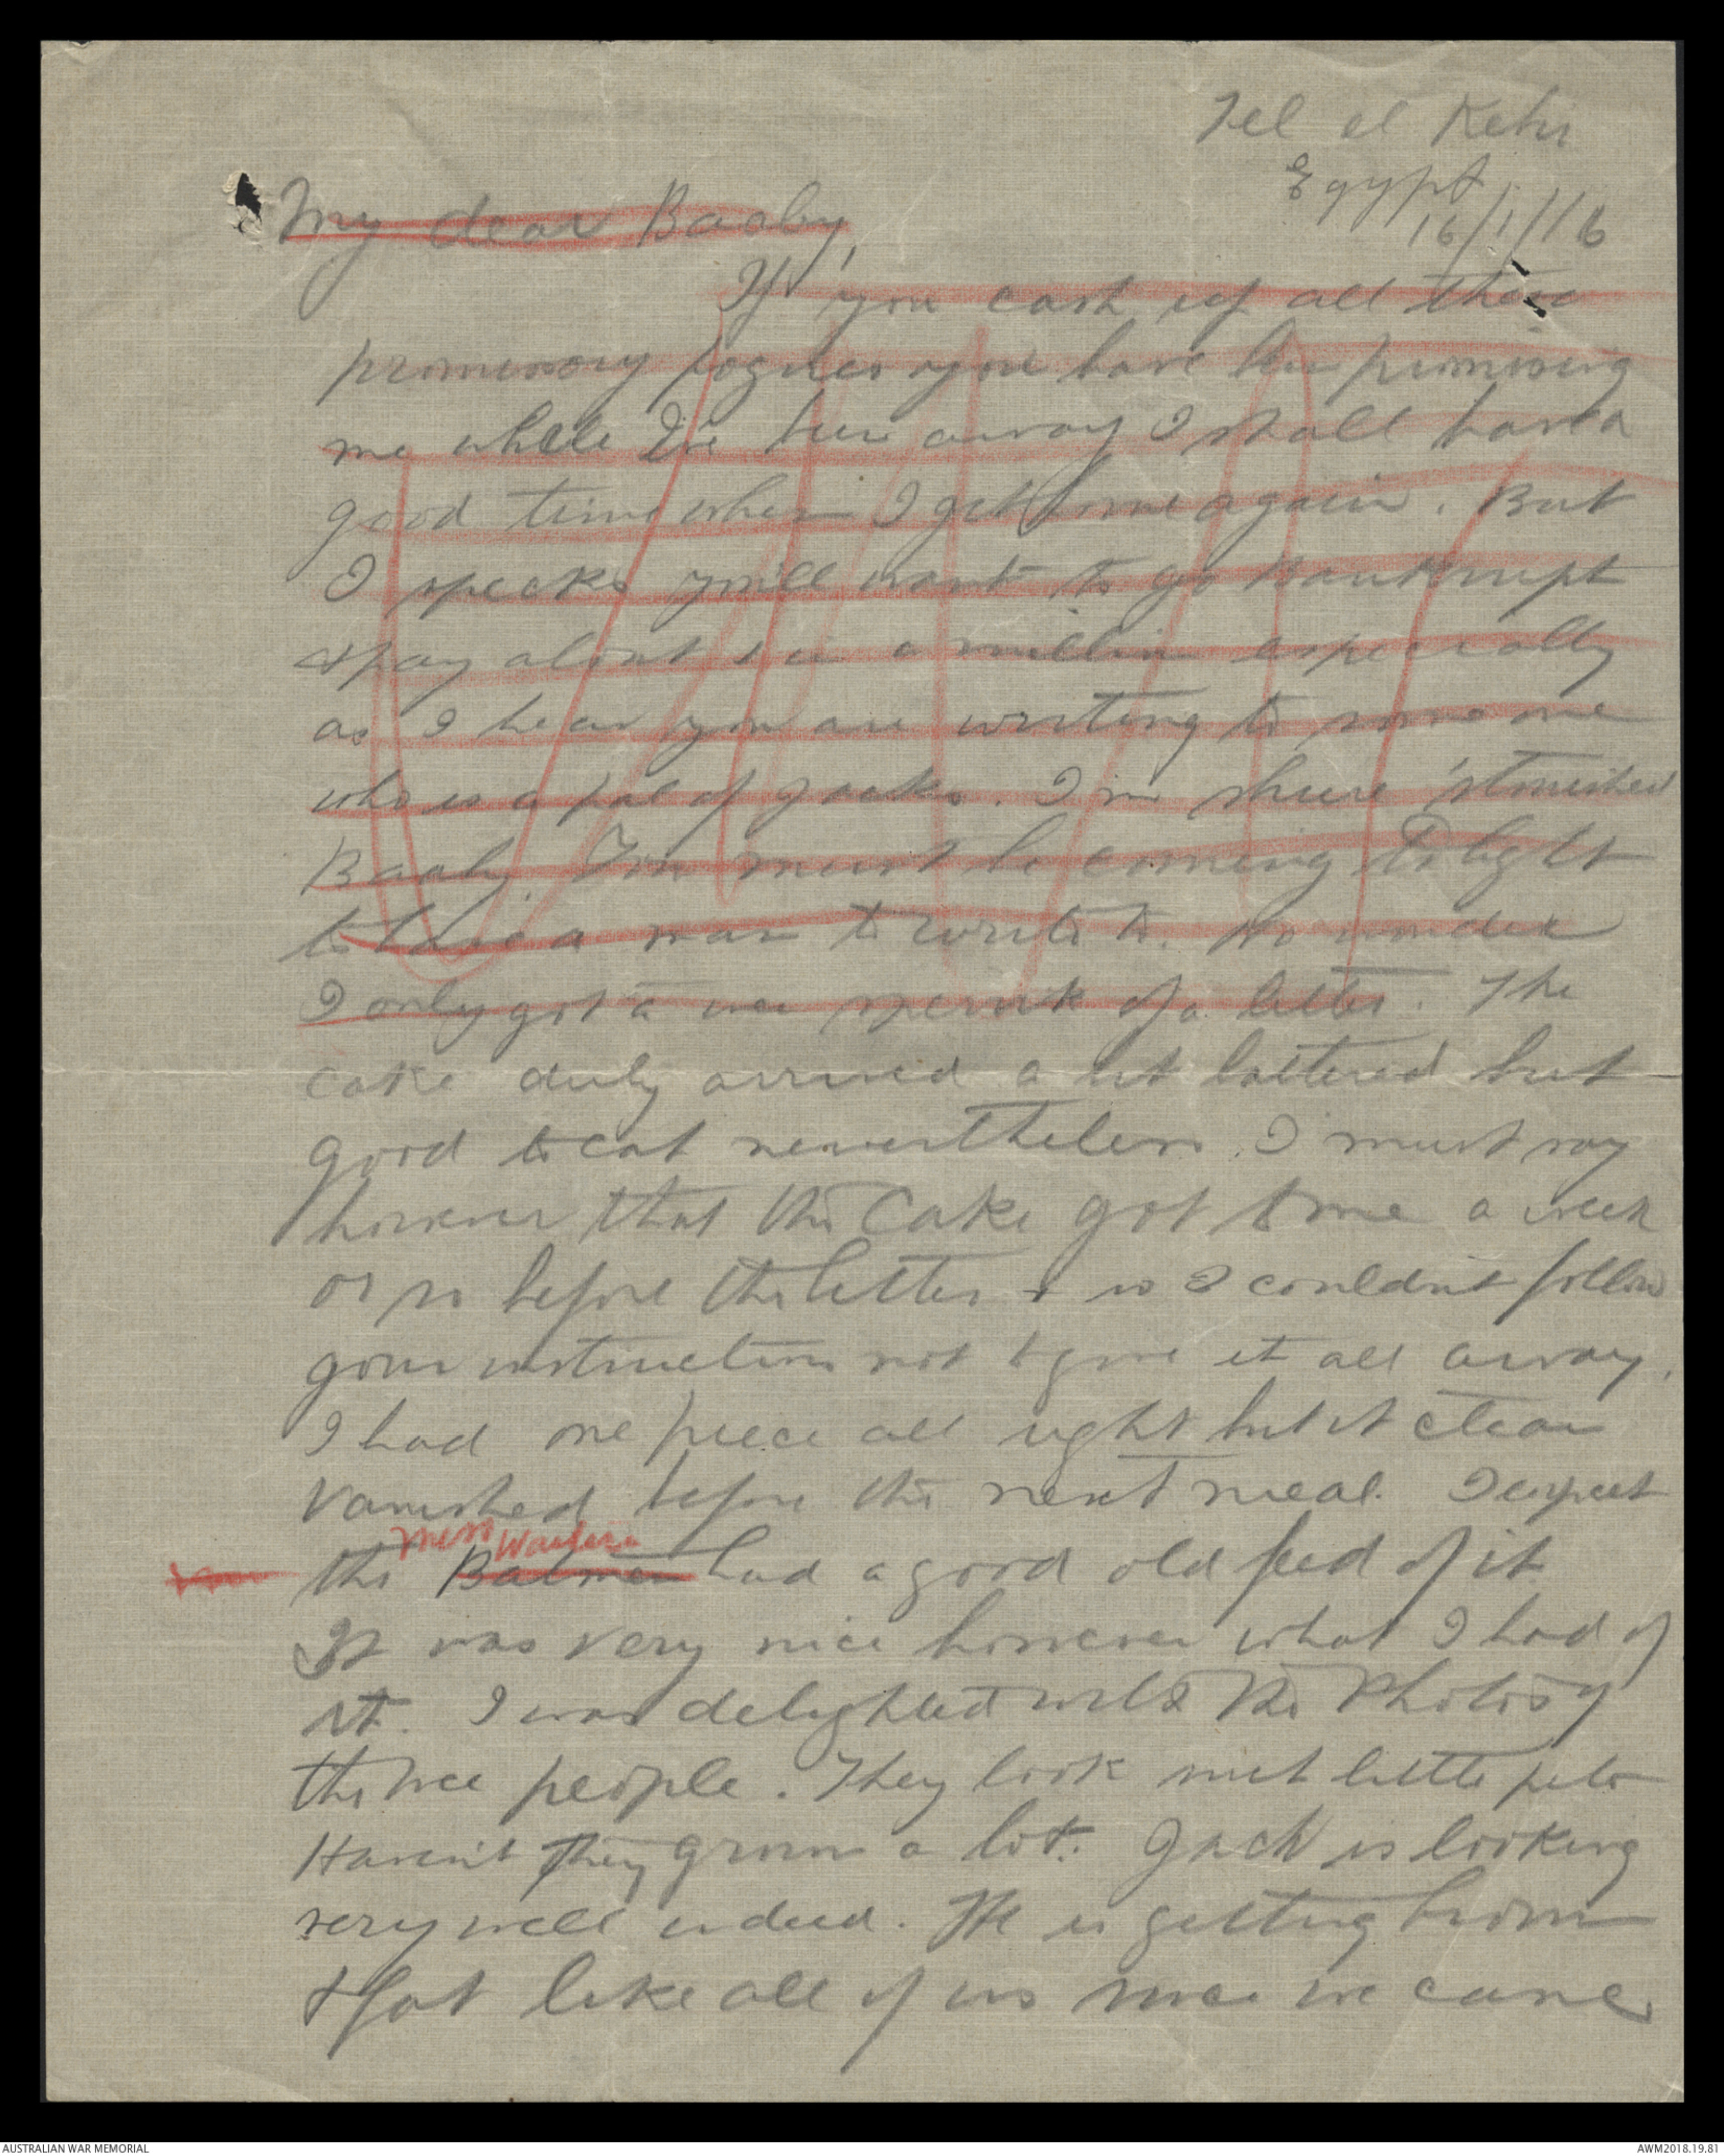 Tel el Kebir
Egypt
16/1/16
My dear Baaby,
If you cash up all those
promissory you have been promising
me while I've been away I shall have a
good time when I get home again. But
I specks you'll want to go Bankrupt
& pay about 1 in a million especially
as I hear you are writing to some one
who is a pal of Jacks. I'm shure 'stonished
Baaby. You must be coming to light
to have a man to write to. No wonder
I only got a wee of a letter. The
cake duly arrived a bit battered but
good to eat nevertheless. I must say
however that the Cake got to me a week
or so before the letter & so I couldn't follow
your instructions not to give it all away.
I had one piece all right but it clean
vanished before the next meal. I expect
mess Waiters
the Batmen had a good old feed of it.
It was very nice however what I had of
it. I was delighted with the Photos of
the wee people. They look such little pets
Haven't they grown a lot. Jack is looking
very well indeed. He is getting brown
& fat like all of us since we came
AUSTRALIAN WAR MEMORIAL
AWM2018.19.81